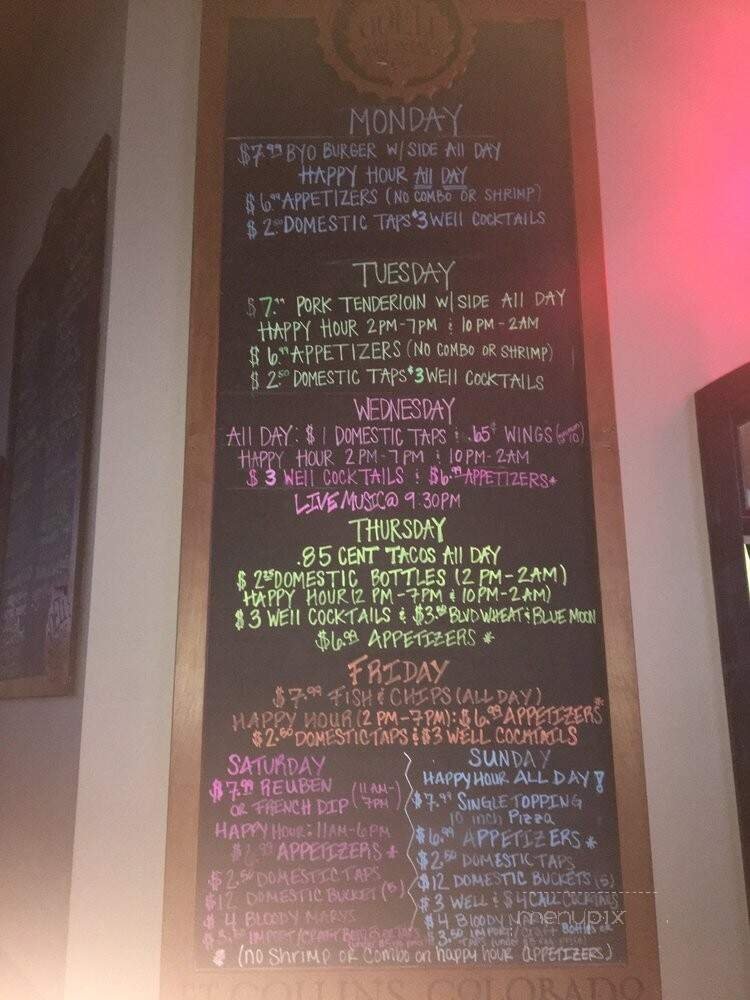 MONDAY
$7.99 BYO BURGER W/ SIDE All DAY
HAPPY HOUR All DAY
$6.99 APPETIZERS (NO COMBO OR SHRIMP)
$2.50 DOMESTIC TAPS $3 WEll COCKTAILS
TUESDAY
$7.99 PORK TENDERlOIN W/ SIDE All DAY
HAPPY HOUR 2PM-7PM & 10PM-2AM
$6.99 APPETIZERS (NO COMBO OR SHRIMP)
$2.50 DOMESTIC TAPS $3 WEll COCKTAILS
WEDNESDAY
All DAY: $1 DOMESTIC TAPS & .65¢ WINGS
HAPPY HOUR 2PM-7PM & 10PM-2AM
$3 WEll COCKTAILS & $6.99 APPETIZERS*
LIVE MUSIC @ 9:30PM
THURSDAY
.85 CENT TACOS All DAY
DOMESTIC BOTTLES (2PM-2AM)
HAPPY HOUR (2PM-7PM & 10PM-2AM)
$3 WEll COCKTAILS & $3.50 BLVD WHEAT & BLUE MOON
$6.99 APPETIZERS *
FRIDAY
$7.99 FISH & CHIPS (ALL DAY)
HAPPY HOUR (2PM-7PM): $6.99 APPETIZERS*
$2.50 DOMESTIC TAPS & $3 WELL COCKTAILS
SATURDAY
$7.99 REUBEN
OR FRENCH DIP (11AM-7PM)
HAPPY HOUR: 11AM-6PM
$6.99 APPETIZERS *
$2.50 DOMESTIC TAPS
$12 DOMESTIC BUCKET (5)
$4 BLOODY MARYS
$3.50 IMPORT/CRAFT
SUNDAY
HAPPY HOUR ALL DAY!
$7.99 SINGLE TOPPING
10 inch Pizza
$6.99 APPETIZERS *
$2.50 DOMESTIC TAPS
$12 DOMESTIC BUCKETS (5)
$3 WELL & $4 CALL COCKTAILS
$4 BLOODY
menupix
$3.50 IMPORT/Craft BOTTLES OR
* (no Shrimp or Combo on happy hour APPETIZERS)
FT COLLINS, COLORADO